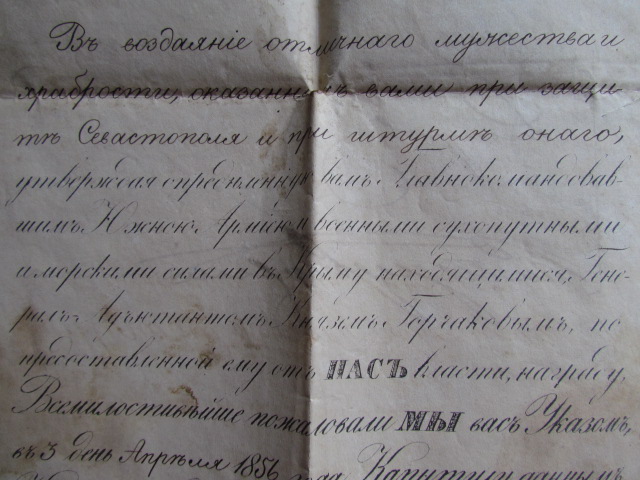 Въ воздаянiе отличнаго мужества и
храбрости, оказанныхъ вами при защи
тѣ Севастополя и при штурмѣ онаго,
утверждая опредѣленную вамъ Главнокомандовав-
шимъ Южною Армiею и военными сухопутными
и морскими силами въ Крыму находящимися, Гене-
ралъ-Адъютантомъ Княземъ Горчаковымъ, по
предоставленной ему отъ НАСЪ власти, награду,
Всемилостивѣйше пожаловали МЫ васъ Указомъ,
въ 3 день Апрѣля 1856 года, Капитулу даннымъ